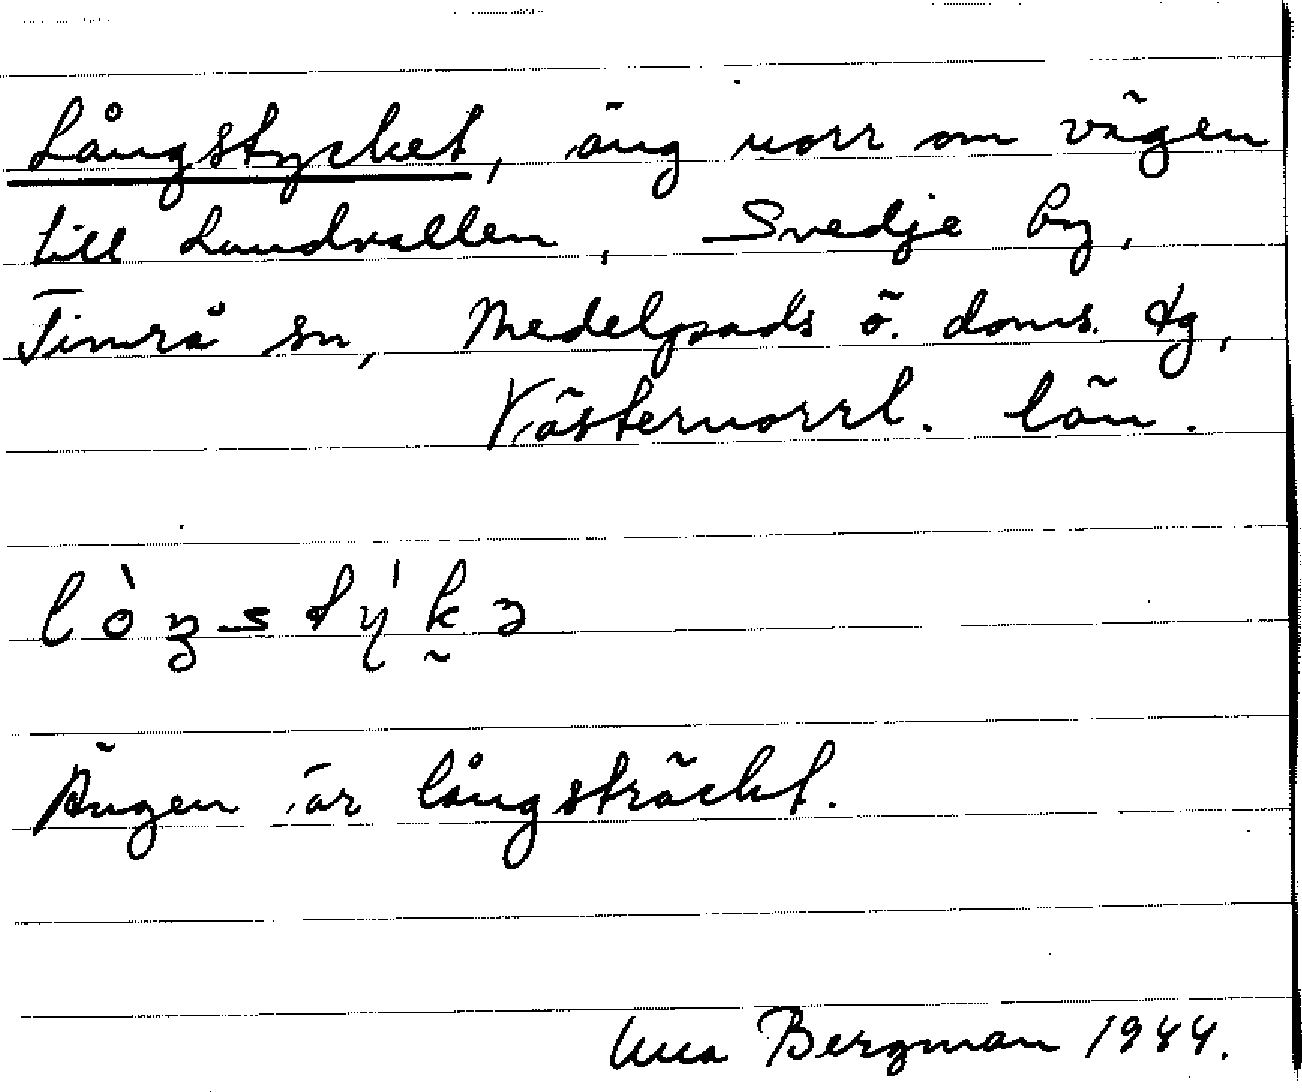 Långstycket, äng norr om vägen
till Landvallen, Svedje by,
Timrå sn, Medelpads ö. doms. tg,
Västernorrl. län.
lòŋstýkə
Ängen är långsträckt.
Bergman 1944.